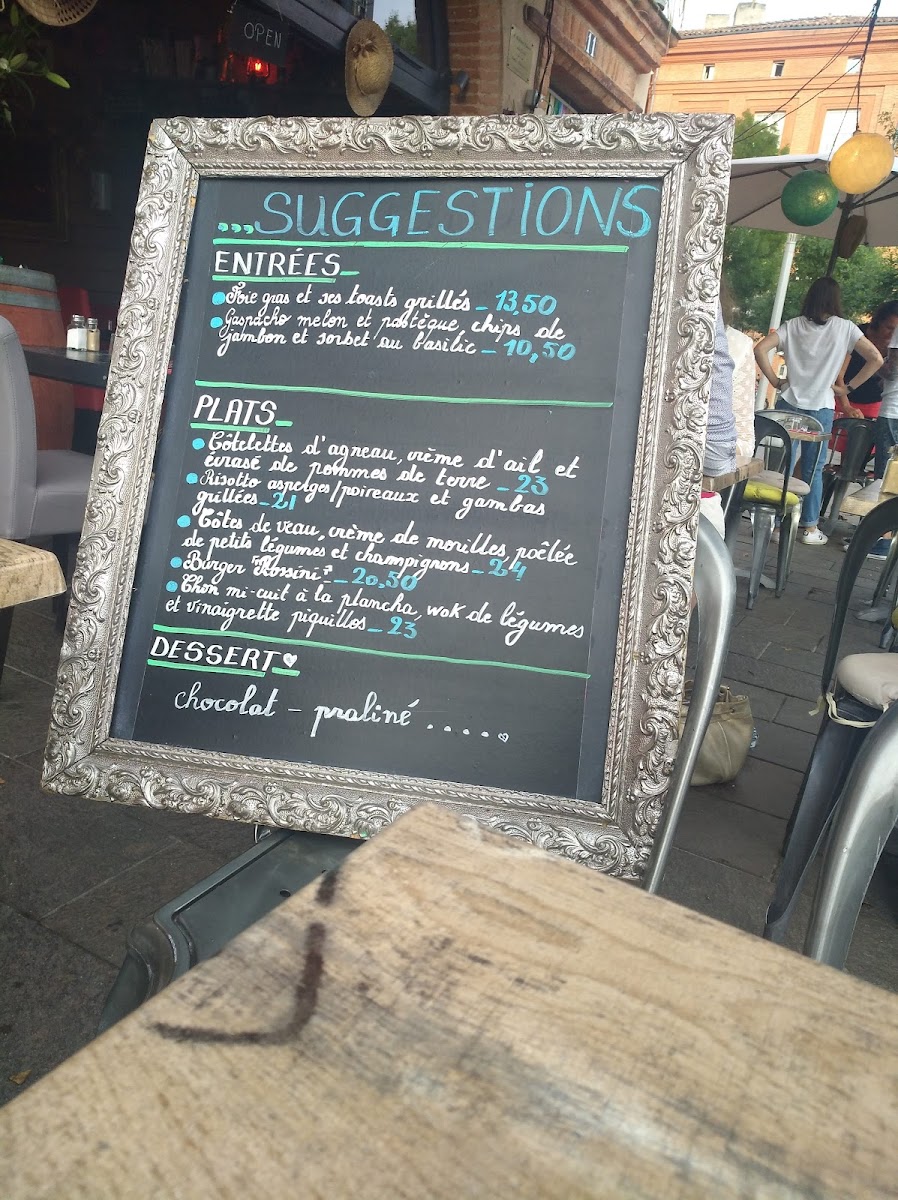 OPEN
...SUGGESTIONS
ENTRÉES
Foie gras et ses toasts grillés - 13,50
Gaspacho melon et pastèque, chips de
jambon et sorbet au basilic - 10,50
PLATS
Côtelettes d'agneau, crème d'ail et
écrasé de pommes de terre - 23
Risotto asperges/poireaux et gambas
grillées - 21
Côtes de veau, crème de morilles, poêlée
de petits légumes et champignons - 24
Burger "Rossini" - 20,50
Thon mi-cuit à la plancha, wok de légumes
et vinaigrette piquillos - 23
DESSERT
chocolat - praliné .....